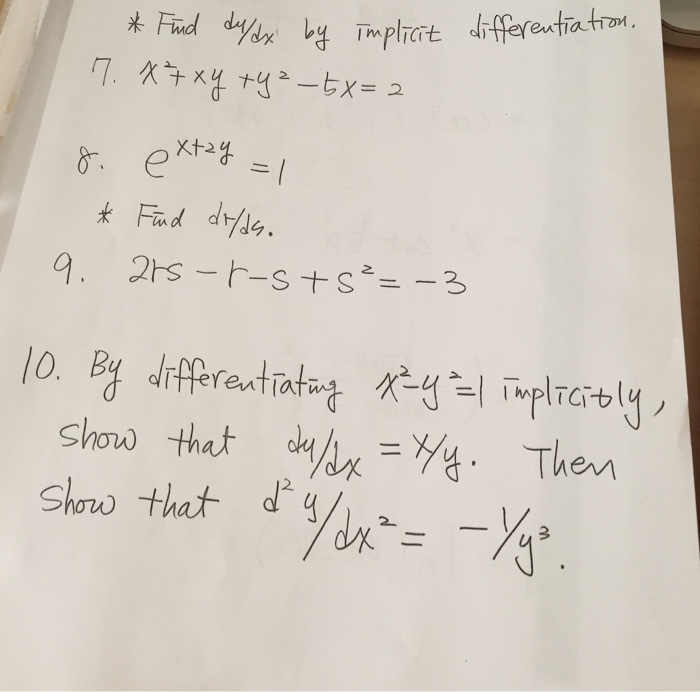 * Find dy/dx by implicit differentiation.
7. x²+xy+y²-5x=2
8. e^{x+2y} = 1
* Find dr/ds.
9. 2rs - r - s + s² = -3
10. By differentiating x²-y²=1 implicitly,
show that dy/dx = x/y. Then
show that d²y/dx² = -1/y³.